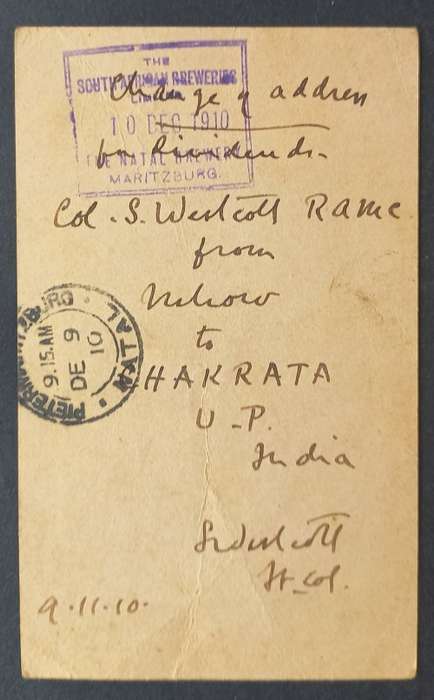 THE
SOUTH AFRICAN BREWERIES
LIMITED
Change of address
10 DEC 1910
for Dividends-
THE NATAL BREWERY
MARITZBURG.
Col. S. Westcott RAMC
from
Mhow
to
HAKRATA
U.P.
India
PIETERMARITZBURG
9.15.AM
DE 9
10
NATAL
S Westcott
Lt. Col.
9.11.10.